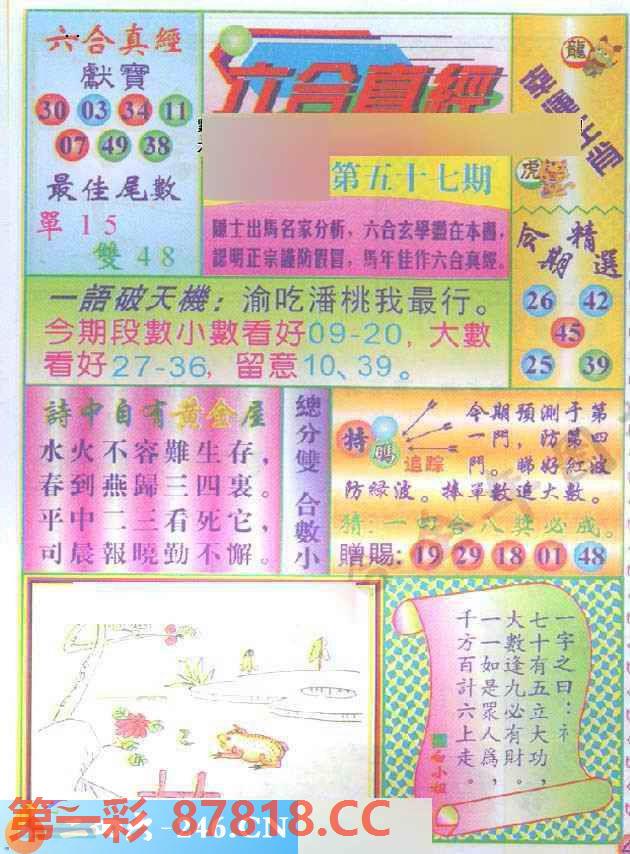 六合真經
獻寶
30 03 34 11
07 49 38
最佳尾數
單 1 5
雙 4 8
六合真經
第五十七期
隱士出馬名家分析，六合玄學盡在本圖，
認明正宗謹防假冒，馬年佳作六合真經。
龍
虎
今期精選
26 42
45
25 39
一語破天機：渝吃潘桃我最行。
今期段數小數看好09-20，大數
看好27-36，留意10、39。
詩中自有黃金屋
水火不容難生存，
春到燕歸三四裏。
平中二三看死它，
司晨報曉勤不懈。
總分雙 合數小
特碼
追踪
今期預測于第
一門，防第四
門。睇好紅波
防緑波。捧單數追大數。
猜:一四合八獎必成。
贈賜: 19 29 18 01 48
一字之曰：礻
七十有五立大功，
大數逢九必有財。
一一如是眾人為，
千方百計六上走。
白小姐
第一彩 87818.CC
-246.CN